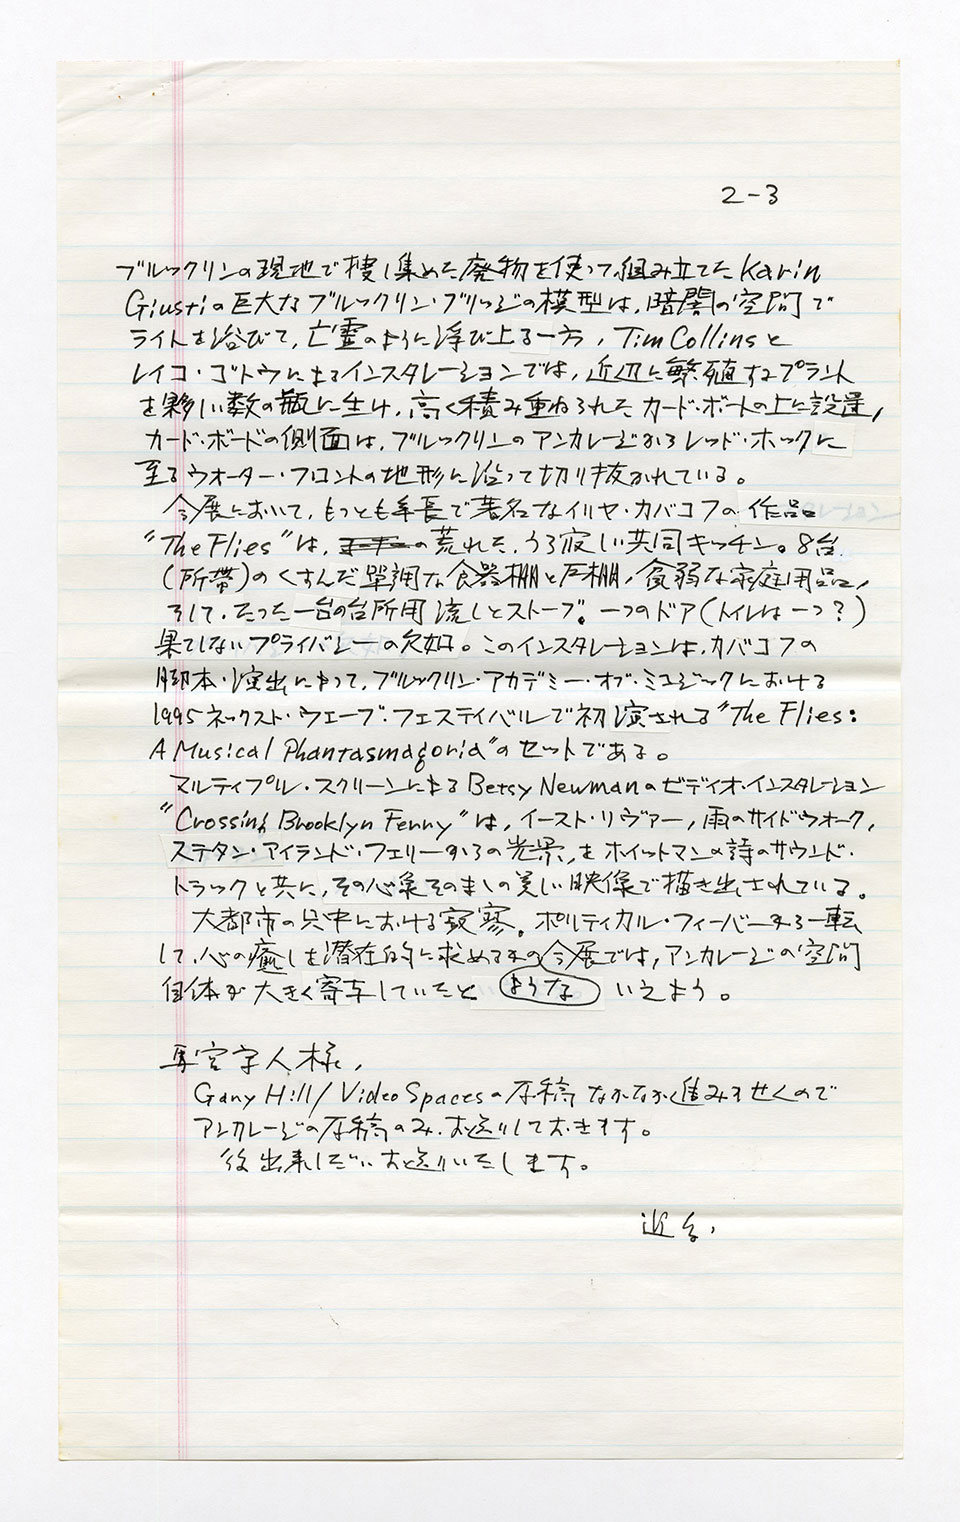 2-3
ブルックリンの現地で捜し集めた廃物を使って組み立てた Karin
Giustiの巨大なブルックリン・ブリッジの模型は、暗闇の空間で
ライトを浴びて、亡霊のように浮び上る一方、Tim Collinsと
レイコ・ゴトウによるインスタレーションでは、近辺に繁殖するプラント
を夥しい数の瓶に生け、高く積み重ねられたカード・ボードの上に設置、
カード・ボードの側面は、ブルックリンのアンカレージからレッド・ホックに
至るウォーター・フロントの地形に沿って切り抜かれている。
今展において、もっとも年長で著名なイリヤ・カバコフの作品
"The Flies"は、の荒れた、うら寂しい共同キッチン。8台
(所帯)のくすんだ単調な食器棚と戸棚、貧弱な家庭用品、
そして、たった一台の台所用流しとストーブ。一つのドア(トイレは一つ?)
果てしないプライバシーの欠如。このインスタレーションは、カバコフの
脚本・演出によって、ブルックリン・アカデミー・オブ・ミュジックにおける
1995ネックスト・ウェーブ・フェスティバルで初演される"The Flies:
A Musical Phantasmagoria"のセットである。
マルティプル・スクリーンによるBetsy Newmanのビディオ・インスタレーション
"Crossing Brooklyn Ferry"は、イースト・リヴァー、雨のサイドウォーク、
ステタン・アイランド・フェリーからの光景、をホイットマンの詩のサウンド・
トラックと共に、その心象そのままの美しい映像で描き出されている。
大都市の只中における寂寥。ポリティカル・フィーバーから一転
して、心の癒しを潜在的に求める今展では、アンカレージの空間
自体が大きく寄与していたと ような いえよう。
様、
Gary Hill/Video Spacesの原稿なかなか進みませんので
アンカレージの原稿のみ、お送りしておきます。
後出来しだいお送りいたします。